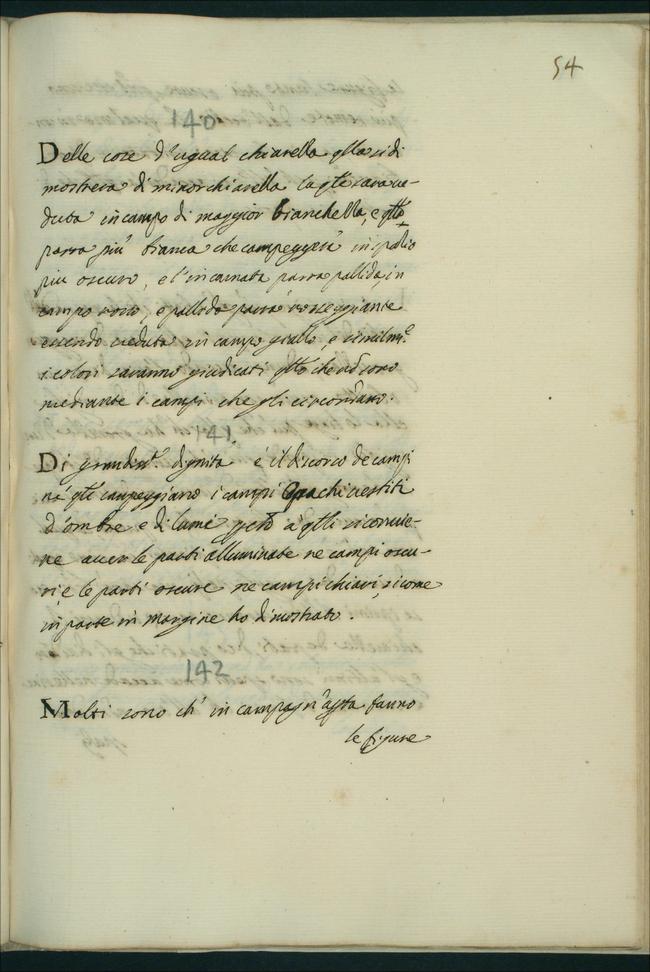 54
140
Delle cose d'ugual chiarella qlla si di
mostrera di minor chiarella la qle sara ue-
duta in campo di maggior bianchella, e qllo
parra più bianca che campeggerà in ispatio
piu oscuro, e l'incarnata parra pallida in
campo rosso, e pallido parrà rosseggiante
essendo ueduto in campo giallo e similmte
i colori saranno giudicati qllo che nō sono
mediante i campi che gli circondano.
141.
Di grandma dignità é il discorso de campi
ne qli campeggiano i campi Opachi uestiti
d'ombre e di lumi però à qlli si conuie-
ne auer le parti alluminate ne campi oscu-
ri, e le parti oscure ne campi chiari, si come
in parte in margine ho dimostrato.
142
Molti sono ch' in campagn' apta fanno
le figure